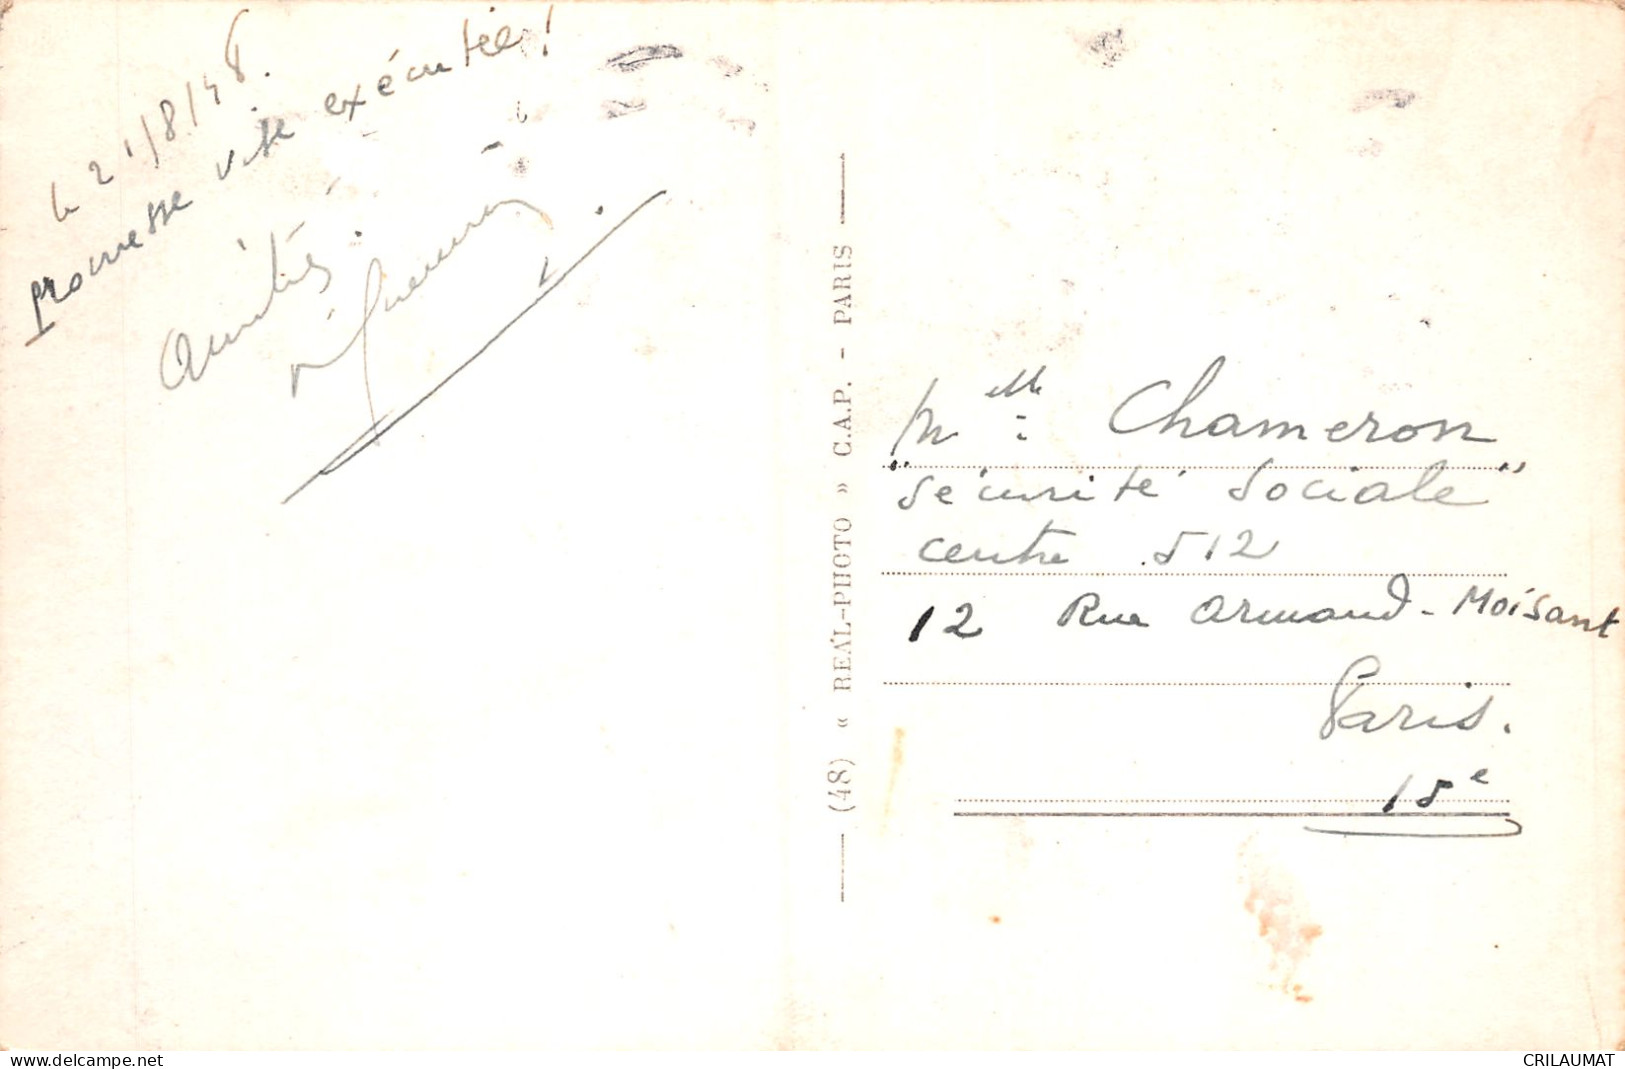 le 21/8/48.
promesse vite exécutée !
Amitiés.
(48) « REAL-PHOTO » C.A.P. - PARIS
Melle Chameron
"Sécurité Sociale"
centre 512
12 Rue Armand-Moisant
Paris.
15e
www.delcampe.net
CRILAUMAT